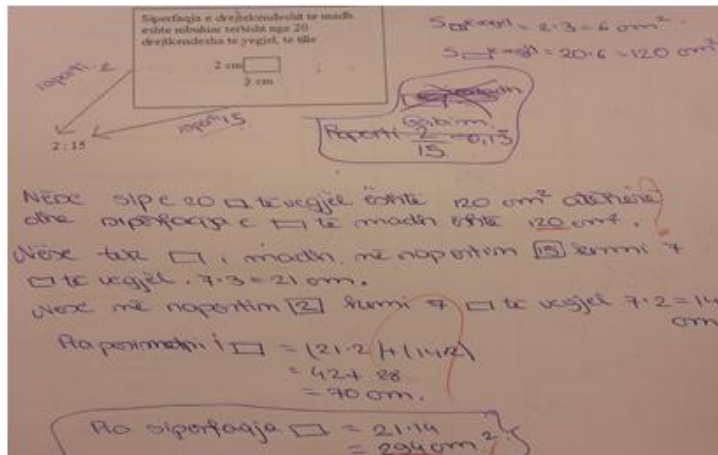 Siperfaqja e drejtekendeshit te madh
eshte mbuluar teresisht nga 20
drejtkendesha te vegjel, te tille
2 cm
3 cm
raporti 2
raporti 15
2 : 15
S vogël = 2·3 = 6 cm².
S vegjël = 20·6 = 120 cm²
Gabim
Raporti 2/15 = 0,13
Nëse sip e 20 të vegjël është 120 cm² atëherë
dhe sipërfaqja e të madh është 120 cm². ?
Nëse tek i madh në raportim 15 kemi 7
të vegjël. 7·3 = 21 cm.
Nëse në raportim 2 kemi 7 të vegjël 7·2 = 14
cm
Pra perimetri i = (21·2)+(14·2)
= 42 + 28
= 70 cm.
Pra siperfaqja = 21·14
= 294 cm²